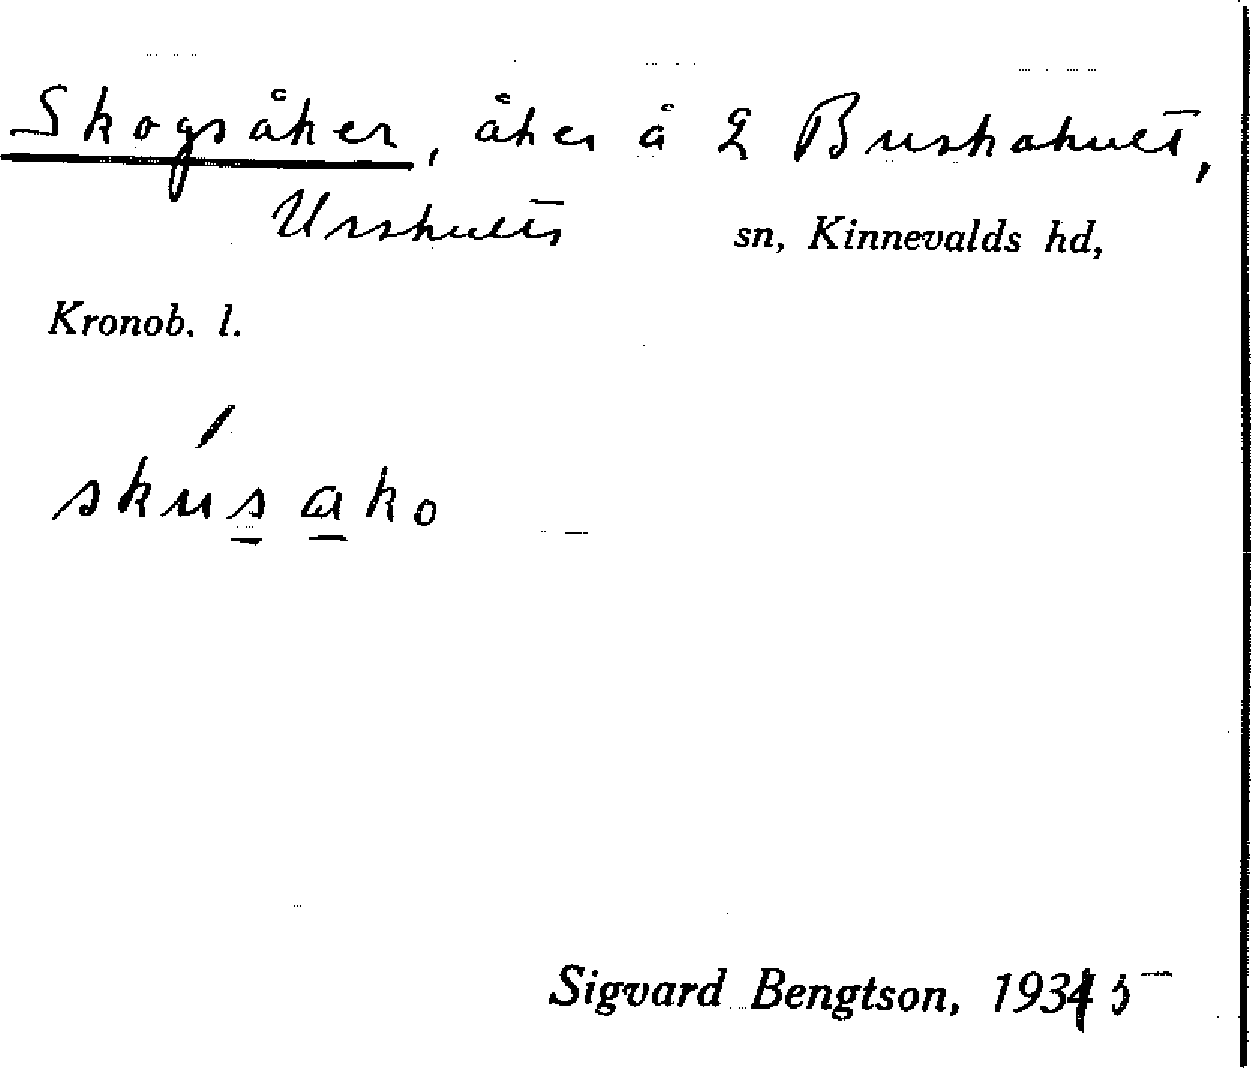 Skogsåker, åker å 2 Buskahult,
Urshults sn, Kinnevalds hd,
Kronob. l.
skusako
Sigvard Bengtson, 1935